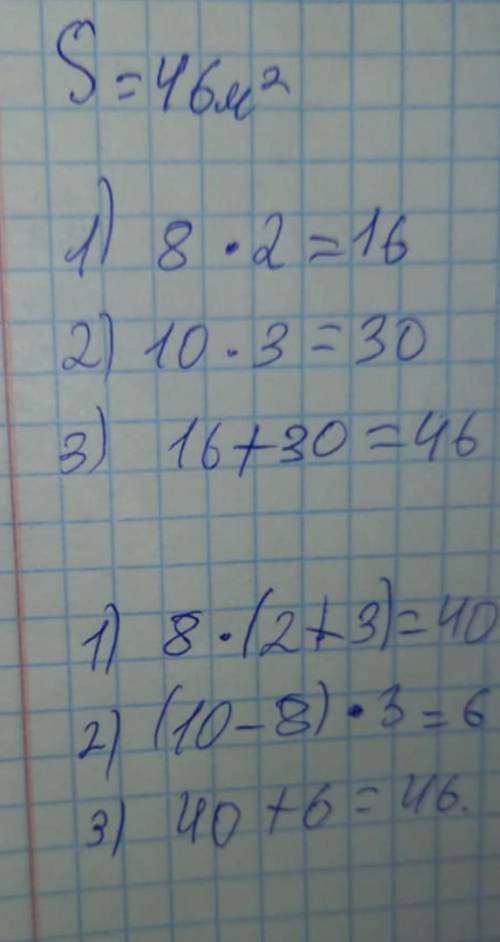 S=46м²
1) 8·2=16
2) 10·3=30
3) 16+30=46
1) 8·(2+3)=40
2) (10-8)·3=6
3) 40+6=46.